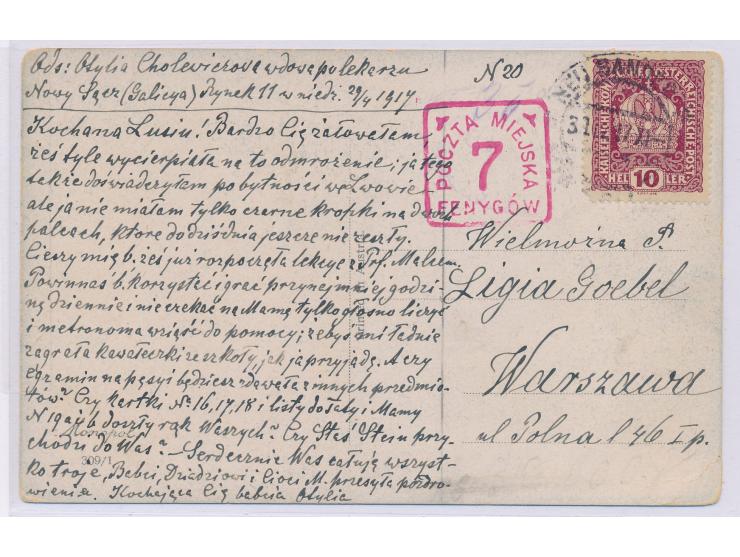 Ods: Otylia Cholewiczowa wdowa po lekarzu
Nowy Sącz (Galicya) Rynek 11 w niedz. 29/4 1917
N 20
Kochana Lusiu! Bardzo Cię żałowałam
żeś tyle wycierpiała na to odmrożenie; ja tego
także doświadczyłam po bytności we Lwowie
ale ja nie miałam tylko czarne kropki na dwóch
palcach, które do dziś dnia jeszcze nie zeszły.
Cieszy mię b. żeś już rozpoczęła lekcye z Prf. Malcem.
Powinnaś b. korzystać i grać przynajmniej godzi-
nę dziennie i nie czekać na Mamę tylko głośno liczyć
i metronoma wziąść do pomocy; żebyś mi ładnie
zagrała kawałeczki ze szkoły, jak ja przyjadę. A czy
egzamin na pęsyi będziesz zdawała z innych przedmio-
tów? Czy kartki No 16, 17, 18 i listy do Taty i Mamy
N 19 doszły rąk Waszych? Czy Staś Stein przy-
chodzi do Was? – Serdecznie Was całują wszyst-
ko troje, Babci, Dziadziowi i Cioci M. przesyła pozdro-
wienia. Kochająca Cię babcia Otylia
309/1
POCZTA MIEJSKA
7
FENYGÓW
KAISERLICHE KÖNIGLICHE ÖSTERREICHISCHE POST
10
HELLER
Wielmożna P.
Ligia Goebel
Warszawa
ul Polna l 46 I p.